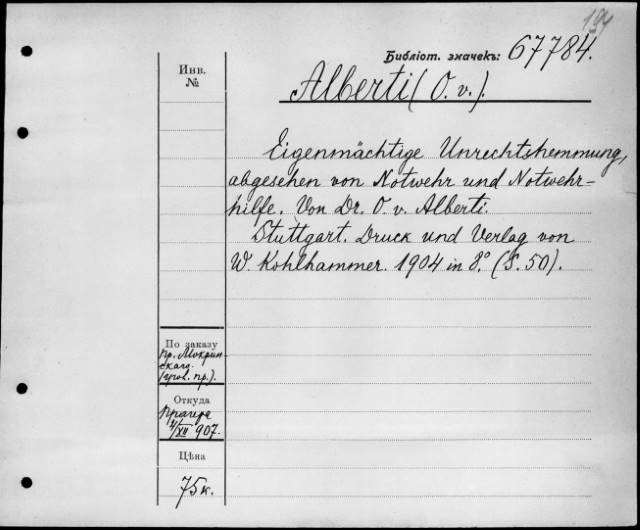 194
Библіот. значекъ: 67784.
Инв.
№
Alberti (O. v.).
Eigenmächtige Unrechtshemmung,
abgesehen von Notwehr und Notwehr-
hilfe. Von Dr. O. v. Alberti.
Stuttgart. Druck und Verlag von
W. Kohlhammer. 1904 in 8.° (S. 50).
По заказу
пр. Мокрин-
скаго
(угол. пр.).
Откуда
Прагера
/XII 907.
Цѣна
75 к.